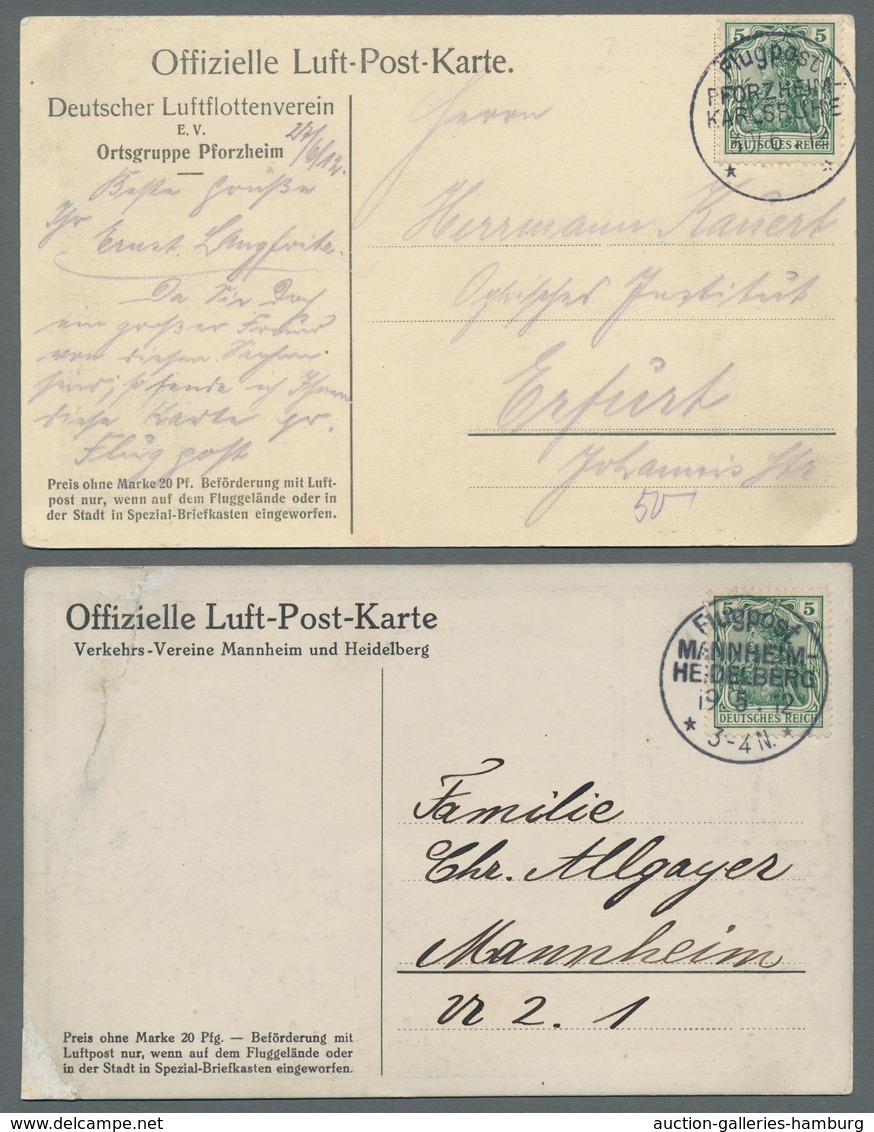 Offizielle Luft-Post-Karte.
Deutscher Luftflottenverein
E. V.
Ortsgruppe Pforzheim
27/6/12.
Beste Grüße
Ihr
Ernst
Da Sie doch
ein großer Freund
von diesen Sachen
sind, so sende ich Ihnen
diese Karte pr.
Flugpost
Preis ohne Marke 20 Pf. Beförderung mit Luft-
post nur, wenn auf dem Fluggelände oder in
der Stadt in Spezial-Briefkasten eingeworfen.
5 5
DEUTSCHES REICH
Flugpost
PFORZHEIM-
KARLSRUHE
30.6.12
Herrn
Herrmann Kanert
Institut
Erfurt
Johannis Str.
50
Offizielle Luft-Post-Karte
Verkehrs-Vereine Mannheim und Heidelberg
5 5
DEUTSCHES REICH
Flugpost
MANNHEIM-
HEIDELBERG
19.5.12
* 3-4 N. *
Familie
Chr. Allgayer
Mannheim
2. 1
Preis ohne Marke 20 Pfg. — Beförderung mit
Luftpost nur, wenn auf dem Fluggelände oder
in der Stadt in Spezial-Briefkasten eingeworfen.
auction-galleries-hamburg